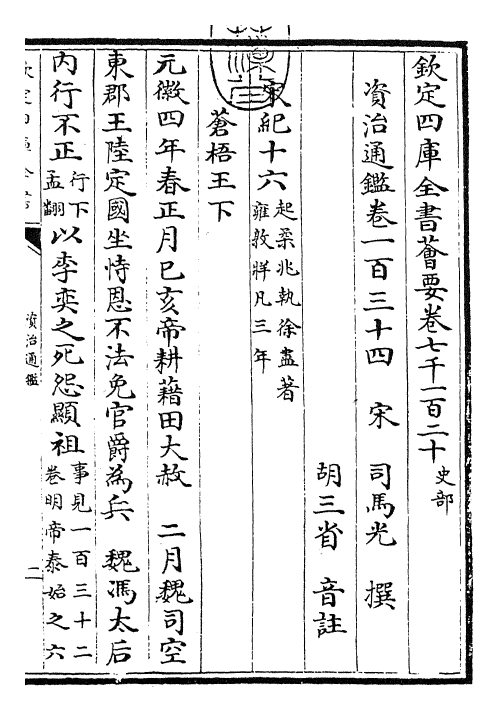 欽定四庫全書薈要卷七千一百二十史部
資治通鑑卷一百三十四 宋 司馬光 撰
胡三省 音註
宋紀十六起柔兆執徐盡著雍敦牂凡三年
蒼梧王下
元徽四年春正月己亥帝耕藉田大赦 二月魏司空
東郡王陸定國坐恃恩不法免官爵為兵 魏馮太后
內行不正行下孟翻以李奕之死怨顯祖事見一百三十二卷明帝泰始之六
資治通鑑